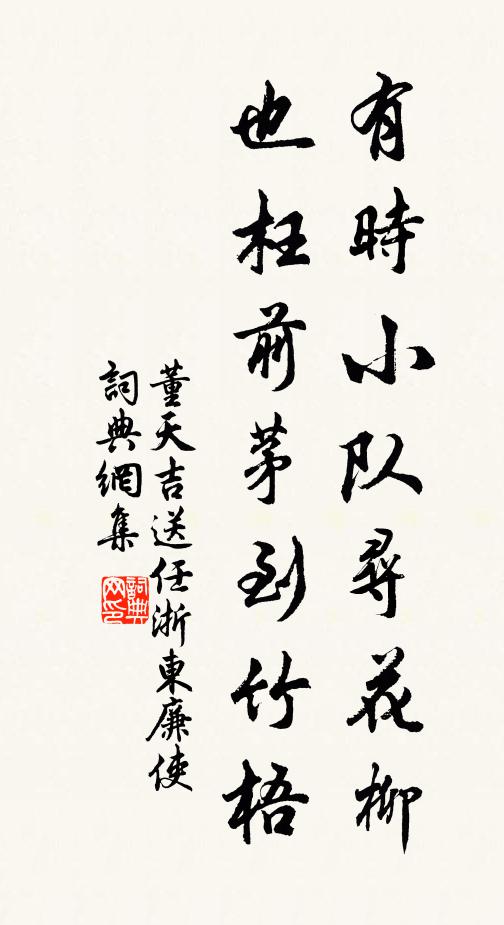 有時小队尋花柳
也枉前茅到竹梧
董天吉送任浙東廉使
詞典網集
詞典網印